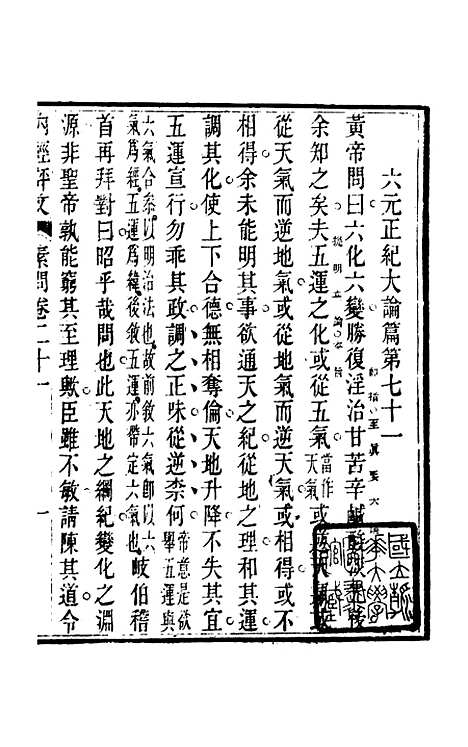 六元正紀大論篇第七十一
黃帝問曰六化六變勝復淫治甘苦辛鹹酸淡先後
余知之矣夫五運之化或從五氣當作天氣或逆天氣或
從天氣而逆地氣或從地氣而逆天氣或相得或不
相得余未能明其事欲通天之紀從地之理和其運
調其化使上下合德無相奪倫天地升降不失其宜
五運宣行勿乖其政調之正味從逆柰何帝意是欲舉五運與
六氣合參以明治法也故前敘六氣卽以六氣爲經五運爲緯後敘五運亦帶定六氣也岐伯稽
首再拜對曰昭乎哉問也此天地之綱紀變化之淵
源非聖帝孰能窮其至理歟臣雖不敏請陳其道令
內經評文 素問卷二十一 一